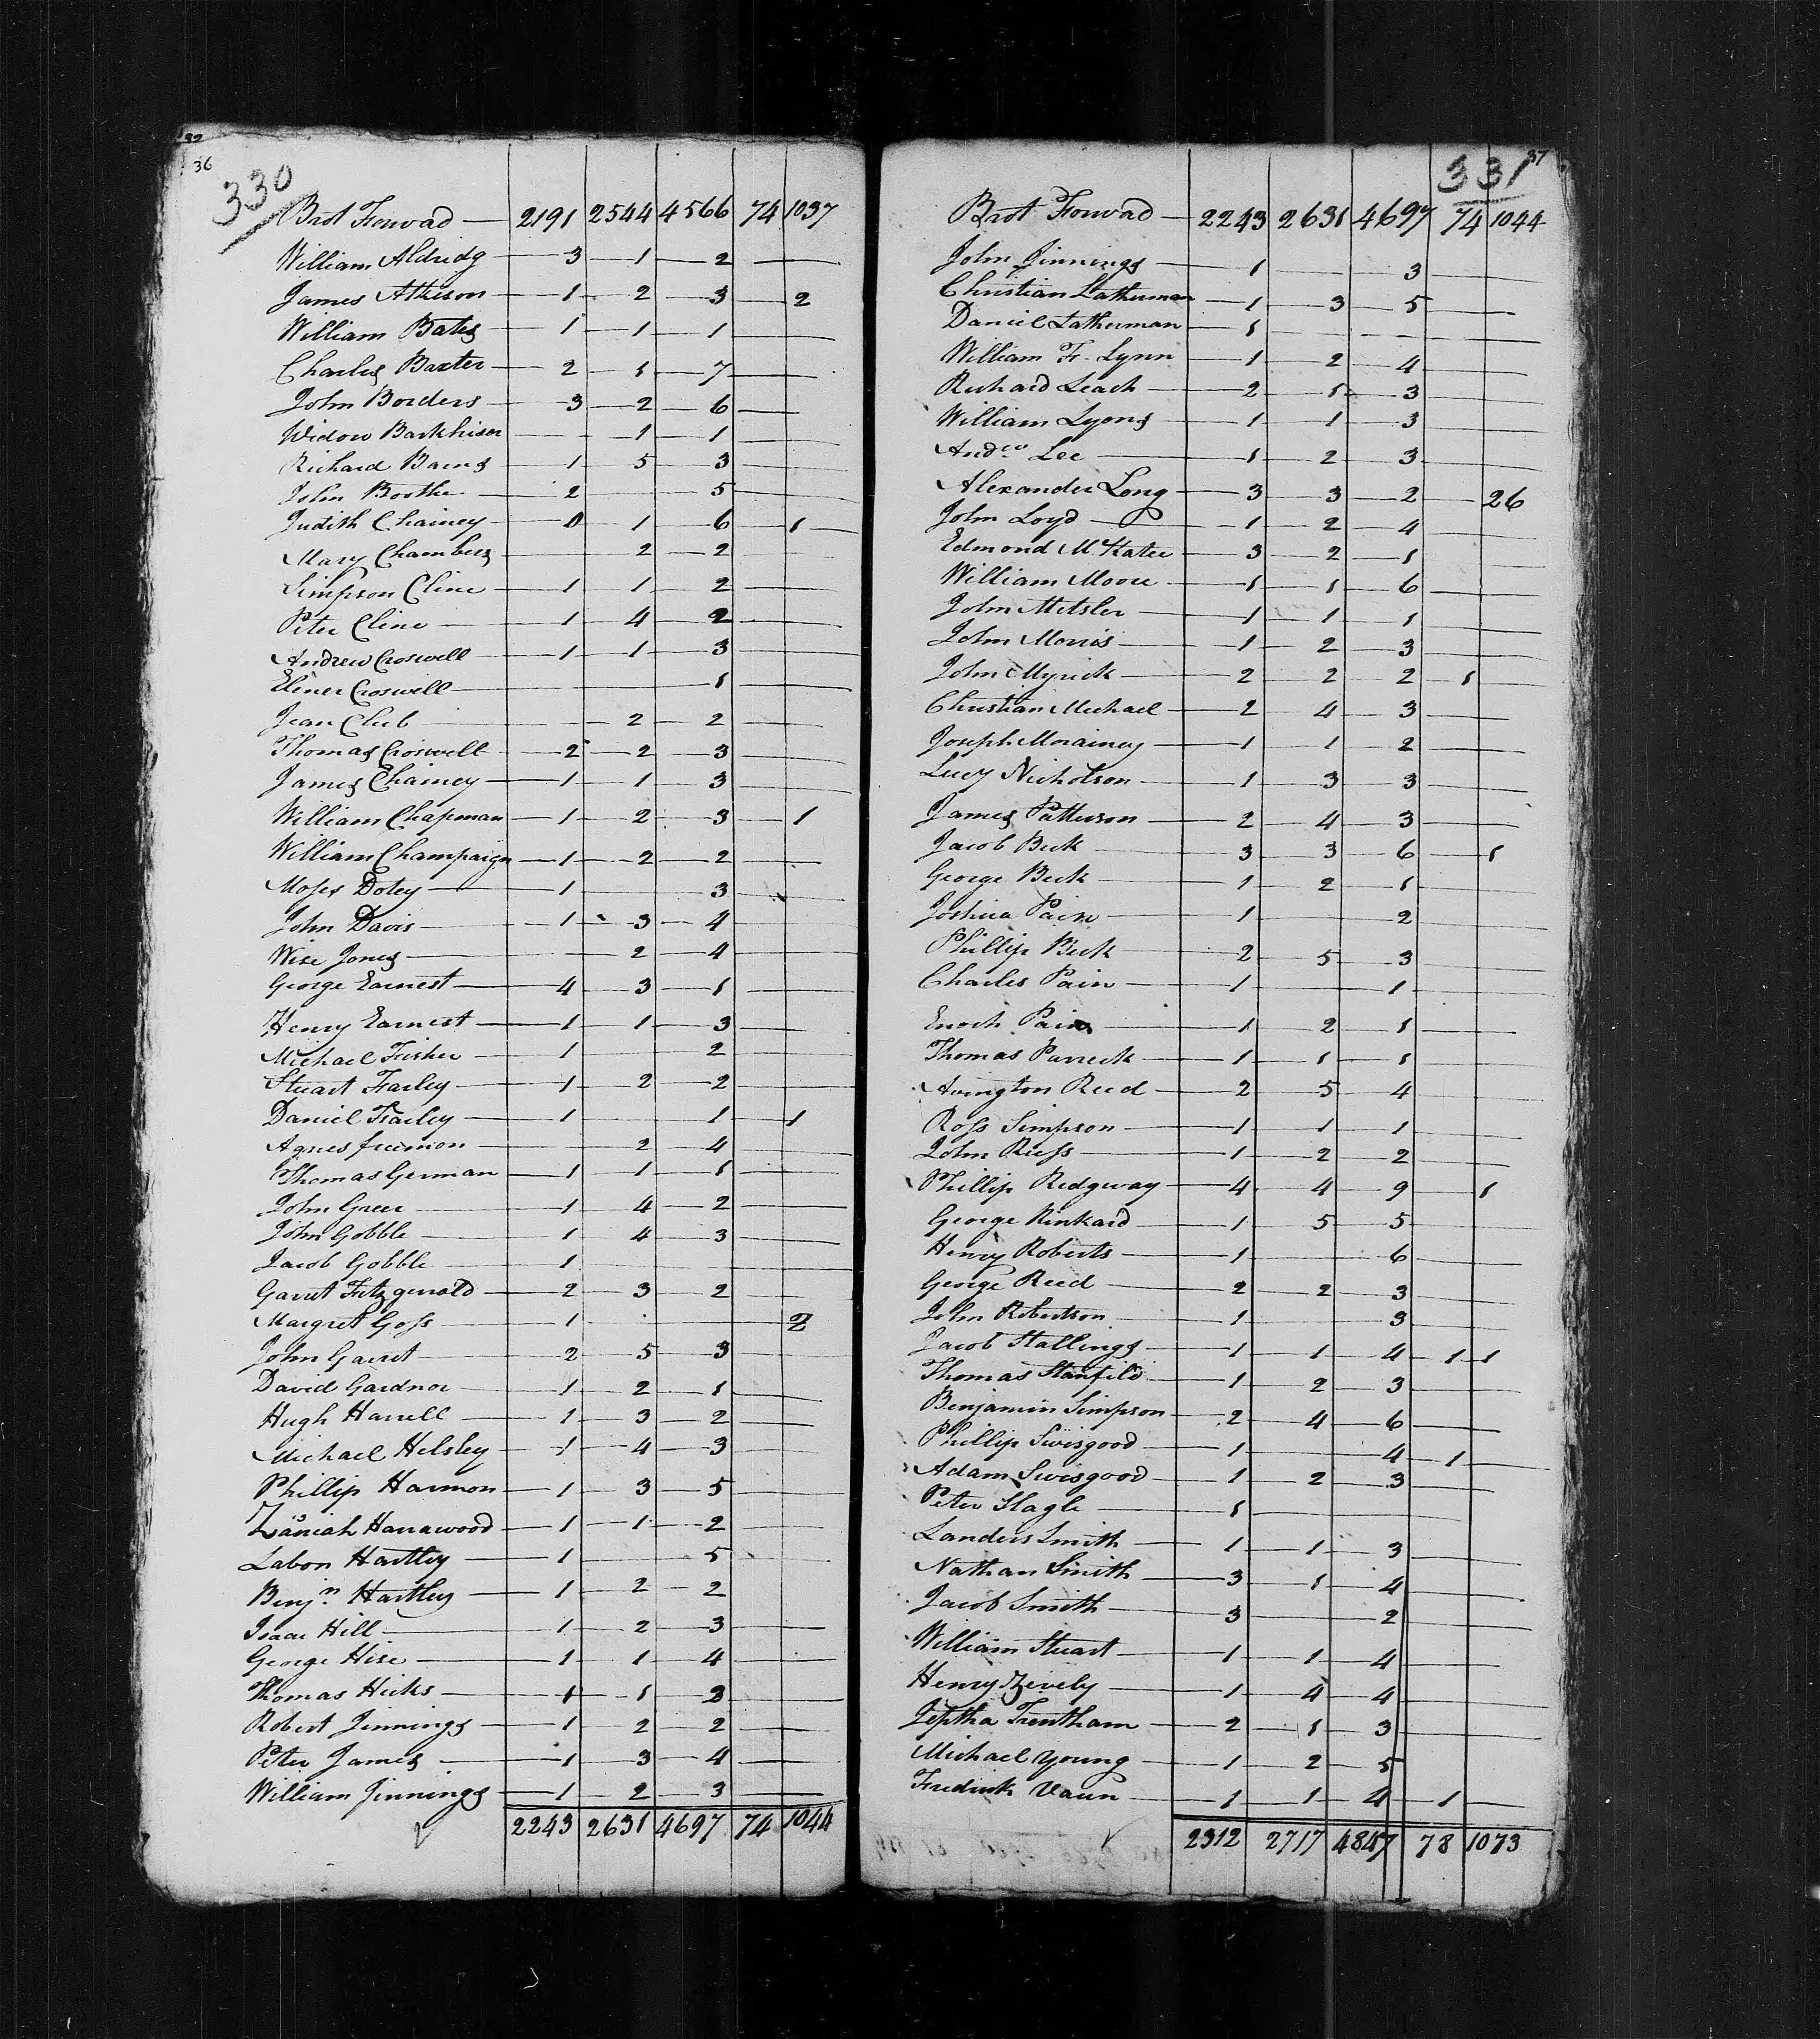 32
36
330
Brot Forward 2191 2544 4566 74 1037
William Aldridg 3 1 2
James Atkison 1 2 3 2
William Bates 1 1 1
Charles Baxter 2 1 7
John Borders 3 2 6
Widow Barkhiser 1 1
Richard Barns 1 5 3
John Boothe 2 5
Judith Chainey 0 1 6 1
Mary Chambers 2 2
Simpson Cline 1 1 2
Peter Cline 1 4 2
Andrew Croswell 1 1 3
Elener Croswell 1
Jean Club 2 2
Thomas Croswell 2 2 3
James Chainey 1 1 3
William Chapman 1 2 3 1
William Champaign 1 2 2
Moses Doty 1 3
John Davis 1 3 4
Wise Jones 2 4
George Earnest 4 3 1
Henry Earnest 1 1 3
Michael Frisher 1 2
Stuart Farley 1 2 2
Daniel Farley 1 1 1
Agnes freemon 2 4
Thomas German 1 1 1
John Greer 1 4 2
John Gobble 1 4 3
Jacob Gobble 1
Garret Fitzgerrald 2 3 2
Margret Goss 1 2
John Garret 2 5 3
David Gardnor 1 2 1
Hugh Harrell 1 3 2
Michael Helsley 1 4 3
Phillip Harmon 1 3 5
Hanawood 1 1 2
Labon Hartley 1 5
Benjn Hartley 1 2 2
Isaac Hill 1 2 3
George Hise 1 1 4
Thomas Hicks 1 1 3
Robert Jinnings 1 2 2
Peter James 1 3 4
William Jinnings 1 2 3
2243 2631 4697 74 1044
37
331
Brot Forwad 2243 2631 4697 74 1044
John Jinnings 1 3
Christian Latherman 1 3 5
Daniel Latherman 1
William Fr. Lynn 1 2 4
Richard Leach 2 1 3
William Lyons 1 1 3
Andrw Lee 1 2 3
Alexander Long 3 3 2 26
John Loyd 1 2 4
Edmond McKatee 3 2 1
William Moore 1 1 6
John Metsler 1 1 1
John Morris 1 2 3
John Myrick 2 2 2 1
Christian Michael 2 4 3
Joseph Morainey 1 1 2
Lucy Nicholson 1 3 3
James Patterson 2 4 3
Jacob Beck 3 3 6 1
George Beck 1 2 1
Joshua Pain 1 2
Phillip Beck 2 5 3
Charles Pain 1 1
Enoch Pain 1 2 1
Thomas Parreck 1 1 1
Avington Reed 2 5 4
Ross Simpson 1 1 1
John Russ 1 2 2
Phillip Redgway 4 4 9 1
George Rinkard 1 5 5
Henry Roberts 1 6
George Reed 2 2 3
John Robertson 1 3
Jacob Stallings 1 1 4 1 1
Thomas Stanfild 1 2 3
Benjamin Simpson 2 4 6
Phillip Swisgood 1 4 1
Adam Swisgood 1 2 3
Peter Slagle 1
Landers Smith 1 1 3
Nathan Smith 3 1 4
Jacob Smith 3 2
William Stuart 1 1 4
Henry Zevely 1 4 4
Jeptha Trentham 2 1 3
Michael Young 1 2 5
Fredirik Vaun 1 1 4 1
2312 2717 4847 78 1073